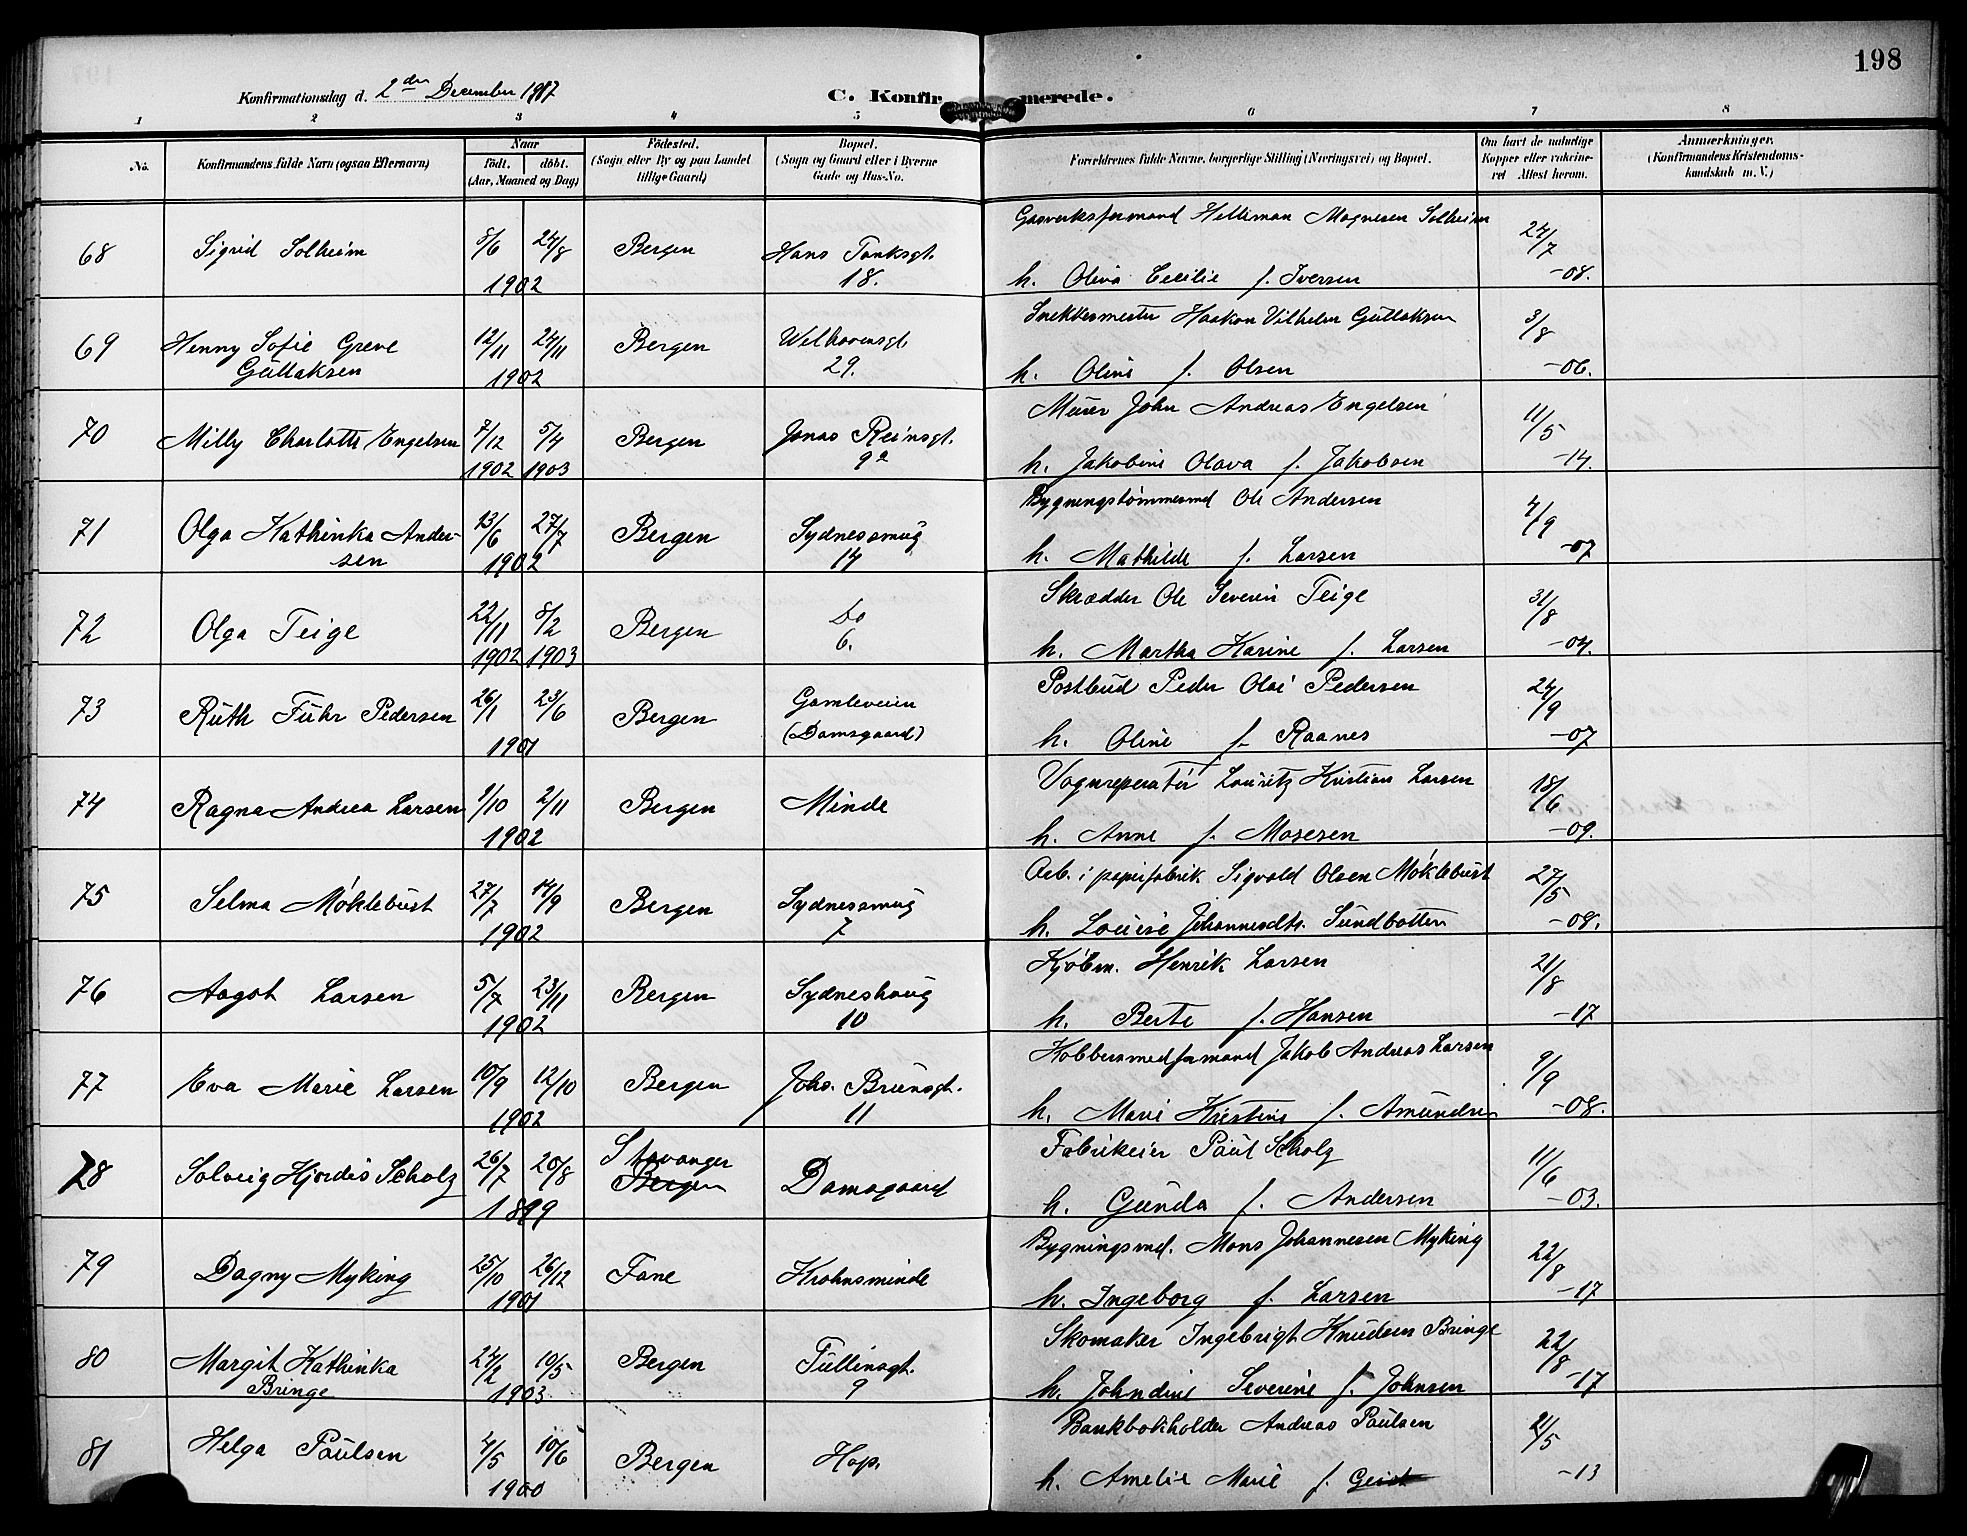 198
Konfirmationsdag d. 2den December 1917
C. Konfirmerede.
1 2 3 4 5 6 7 8
No. Konfirmandens fulde Navn (ogsaa Efternavn) Naar Födested. Bopæl. Forældrenes fulde Navne, borgerlige Stilling (Næringsvei) og Bopæl. Om havt de naturlige Anmærkninger.
födt. döbt. (Sogn eller By og paa Landet (Sogn og Gaard eller i Byerne Kopper eller vakcine- (Konfirmandens Kristendoms-
(Aar, Maaned og Dag) tillige Gaard) Gade og Hus-No. ret Attest herom. kundskab m. V.)
68 Sigrid Solheim 8/6 24/8 Bergen Hans Tanksgt. Gasverksformand Helliman Magnesen Solheim 24/7
1902 18. h. Oliva Cecilie f. Iversen -08.
69 Henny Sofie Greve 12/11 24/11 Bergen Welhavensgt. Snekkermester Haakon Vilhelm Gullaksen 3/8
Gullaksen 1902 29. h. Oline f. Olsen -06.
70 Milly Charlotte Engelsen 7/12 5/4 Bergen Jonas Reinsgt. Murer John Andreas Engelsen 11/5
1902 1903 9a h. Jakobine Olava f. Jakobsen -14.
71 Olga Kathinka Ander- 13/6 27/7 Bergen Sydnessmug Bygningstømmermd Ole Andersen 4/9
sen 1902 14 h. Mathilde f. Larsen -07
72 Olga Teige 22/11 8/2 Bergen Do Skrædder Ole Severin Teige 31/8
1902 1903 6. h. Martha Karine f. Larsen -04.
73 Ruth Fuhr Pedersen 26/1 23/6 Bergen Gamleveien Postbud Peder Olai Pedersen 24/9
1901 (Damsgaard) h. Oline f. Raanes -07
74 Ragna Andrea Larsen 1/10 2/11 Bergen Minde Vognreperatør Lauritz Kristian Larsen 18/6
1902 h. Anne f. Mosesen -09.
75 Selma Møklebust 27/7 14/9 Bergen Sydnessmug Arb. i papirfabrik Sigvald Olsen Møklebust 27/5
1902 7 h. Louise Johannesdtr. Sundbotten -08.
76 Aagot Larsen 5/7 23/11 Bergen Sydneshaug Kjøbm. Henrik Larsen 21/8
1902 10 h. Berte f. Hansen -17
77 Eva Marie Larsen 10/9 12/10 Bergen Johs. Brunsgt. Kobbersmedformand Jakob Andreas Larsen 9/9
1902 11 h. Marie Kristine f. Amundsen -08.
78 Solveig Hjørdis Scholz 26/7 20/8 Stavanger Bergen Damsgaard Fabrikeier Paul Scholz 11/6
1899 h. Gunda f. Andersen -03.
79 Dagny Myking 25/10 26/12 Fane Krohnsminde Bygningsmd. Mons Johannesen Myking 22/8
1901 h. Ingeborg f. Larsen -17
80 Margit Kathinka 24/2 10/5 Bergen Tullinsgt. Skomaker Ingebrigt Knudsen Bringe 22/8
Bringe 1903 9 h. Johndine Severine f. Johnsen -17
81 Helga Paulsen 4/5 10/6 Bergen Hop. Bankbokholder Andreas Paulsen 21/5
1900 h. Amelie Marie f. Geist -13